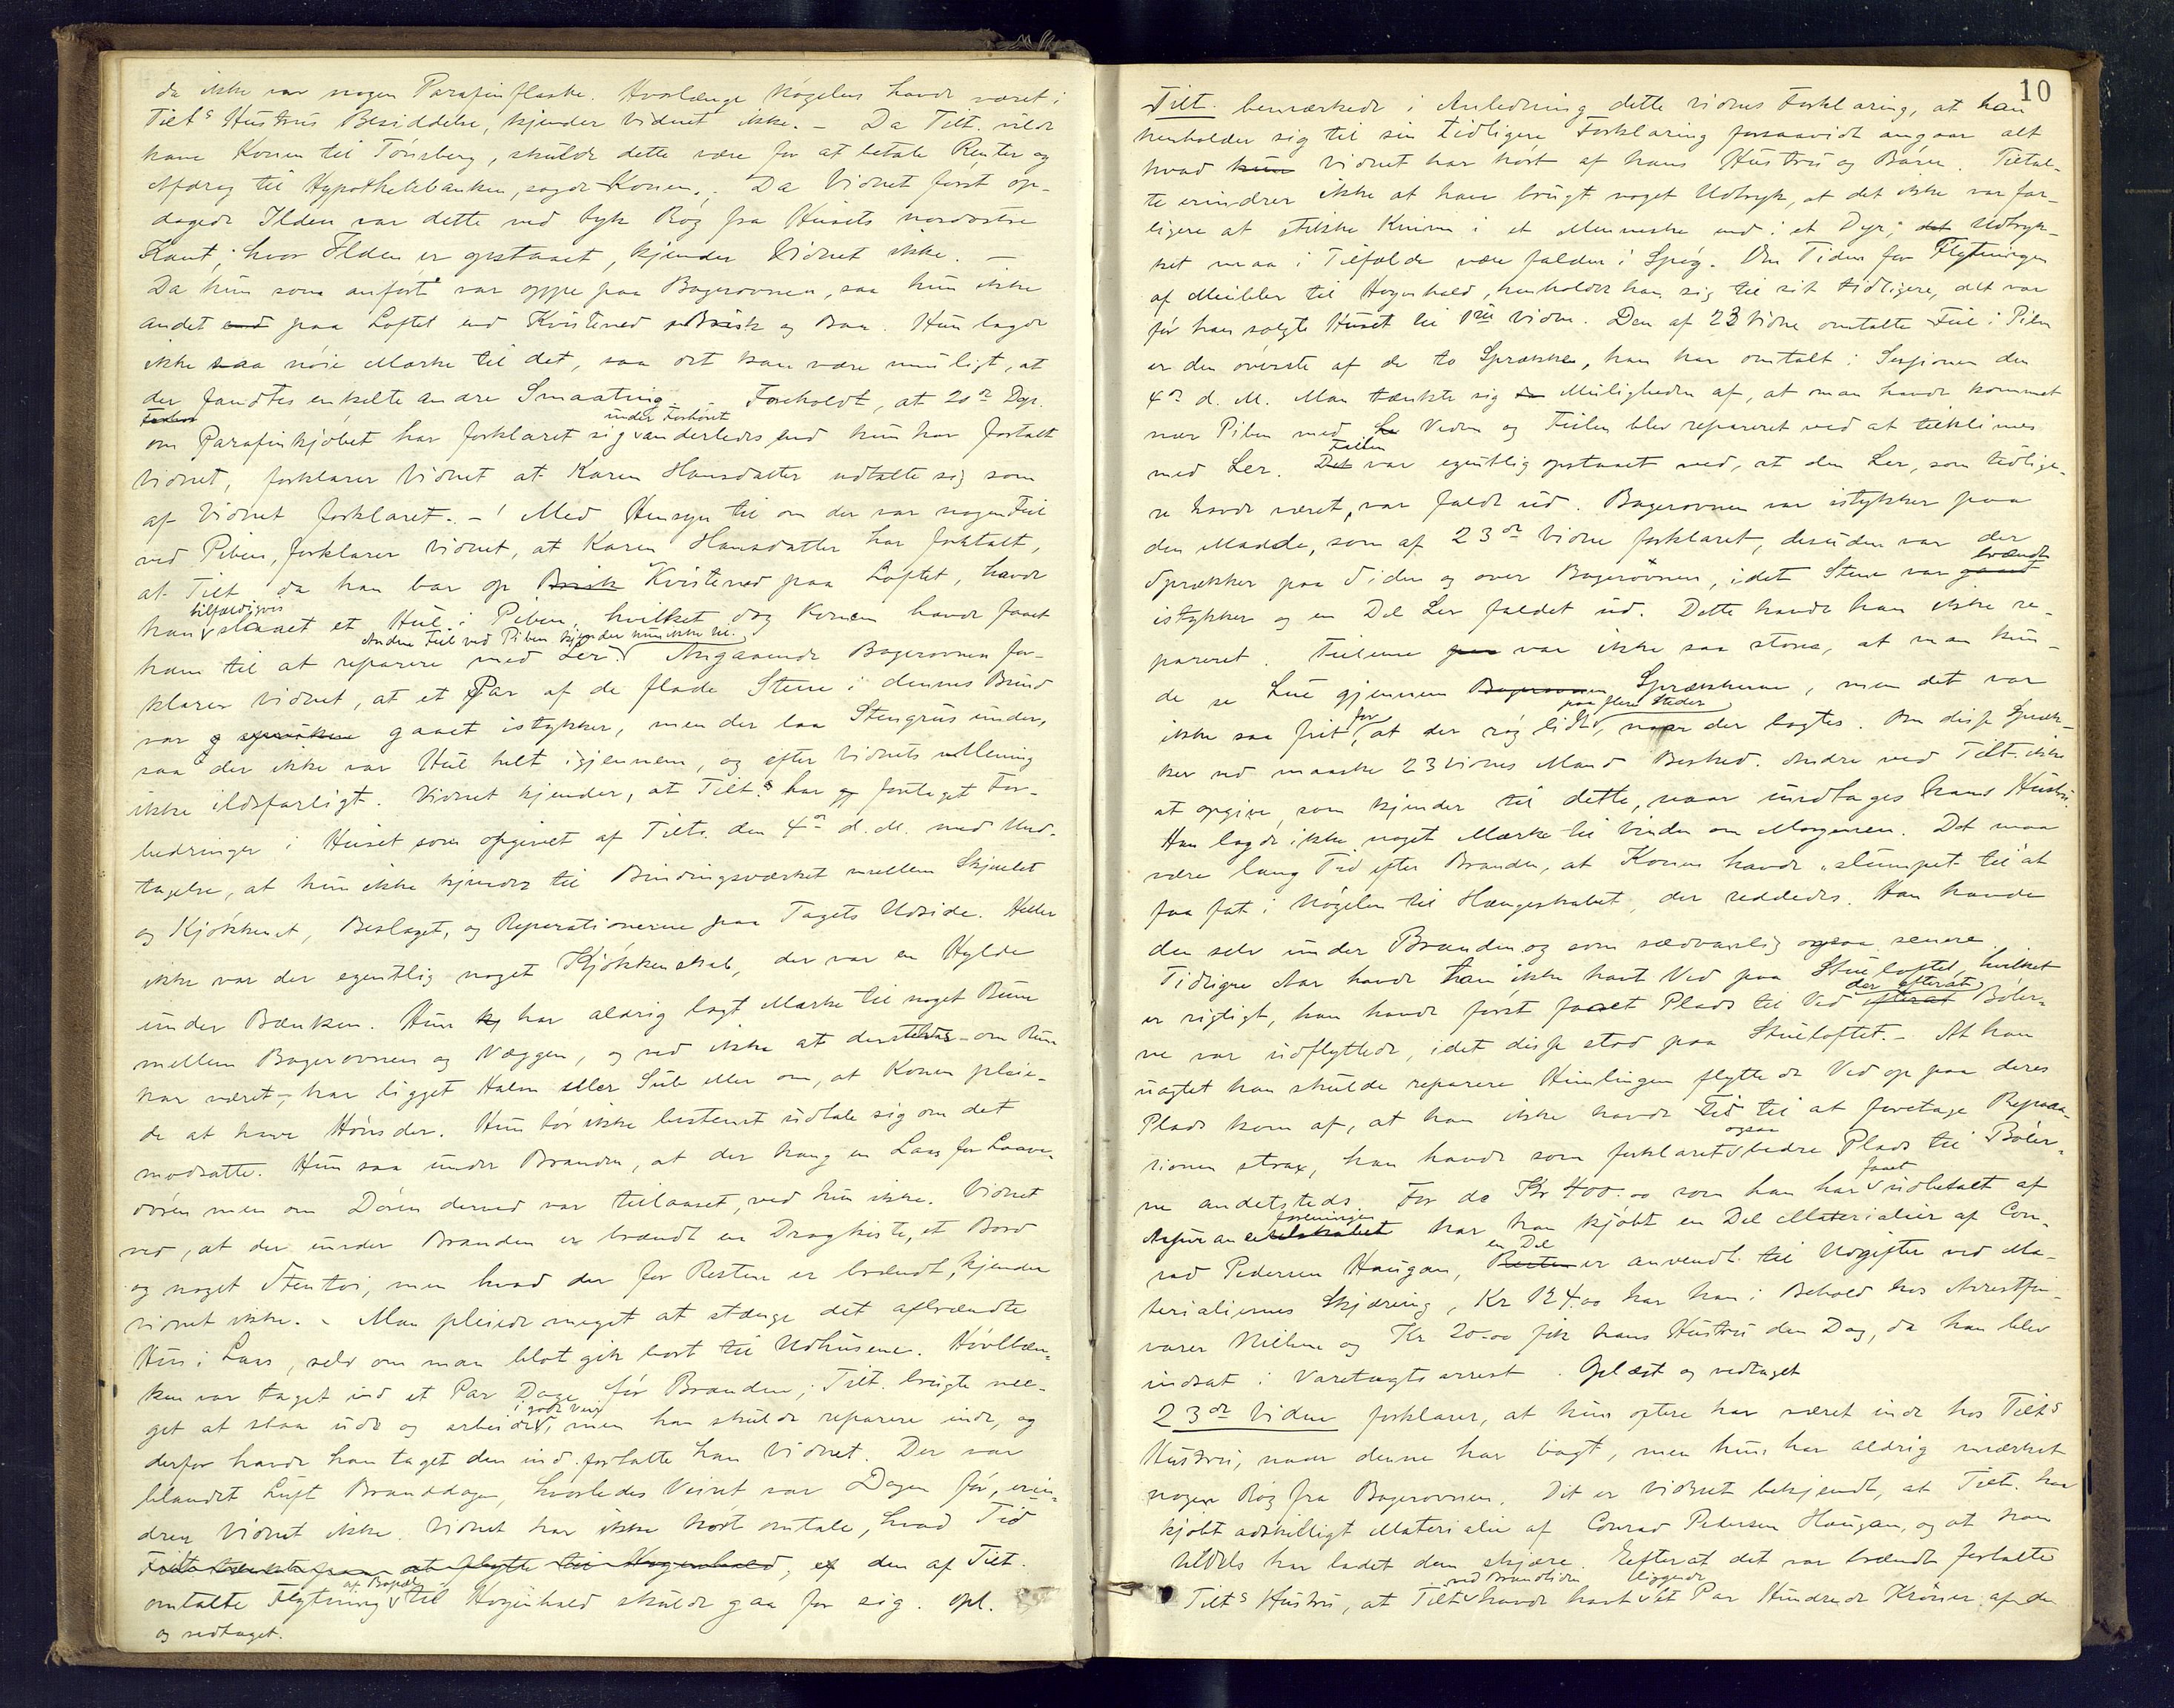 da ikke var nogen Parafinflaske. Hvorlænge Nøgelen havde været i
Tilts Hustrus Besiddelse, kjender Vidnet ikke. – Da Tilt. vilde
have Konen til Tønsberg, skulde dette være for at betale Renter og
Afdrag til Hypothekbanken, sagde Konen. – Da Vidnet først op-
dagede Ilden var dette ved tyk Røg fra Husets nordøstre
Kant; hvor Ilden er opstaaet, kjender Vidnet ikke. –
Da hun som anført var oppe paa Bagerovnen, saa hun ikke
andet end paa Loftet end Kvisteved Brisk og Baa. Hun lagde
ikke saa nøie Mærke til det, saa det kan være muligt, at
der fandtes enkelte andre Smaating. – Foreholdt, at 20de Dep.
om Parafinkjøbet har forklaret sig under Forhøret anderledes end hun har fortalt
Vidnet, forklarer Vidnet at Karen Hansdatter udtalte sig som
af Vidnet forklaret. – Med Hensyn til om der var nogen Feil
ved Piben, forklarer Vidnet, at Karen Hansdatter har fortalt,
at Tilt da han bar op Brisk Kvisteved paa Loftet, havde
han tilfældigvis slaaet et Hul i Piben, hvilket dog Konen havde faaet
ham til at reparere med Ler. Anden Feil ved Piben kjender hun ikke til. Angaaende Bagerovnen for-
klarer Vidnet, at et Par af de flade Stene i dennes Bund
var gaaet istykker, men der laa Stengrus under,
saa der ikke var Hul helt igjennem, og efter Vidnets Mening
ikke ildsfarligt. Vidnet kjender, at Tilt. har foretaget For-
bedringer i Huset som opgivet af Tilte. den 4de d. M. med Und-
tagelse, at hun ikke kjender til Bindingsværket mellem Skjulet
og Kjøkkenet, Beslaget, og Reperationerne paa Tagets Udside. Heller
ikke var der egentlig noget Kjøkkenskab, der var en Hylde
under Bænken. Hun har aldrig lagt Mærke til noget Rum
mellem Bagerovnen og Væggen, og ved ikke at dersteds – om Rum
har været – har ligget Halm eller Sub eller om, at Konen pleie-
de at have Høns der. Hun tør ikke bestemt udtale sig om det
modsatte. Hun saa under Branden, at der hang en Laas for Laave-
døren men om Døren derved var tillaaset, ved hun ikke. Vidnet
ved, at der under Branden er brændt en Dragkiste, et Bord
og noget Stentøi, men hvad der for Resten er brændt, kjender
Vidnet ikke. – Man pleiede meget at stænge det afbrændte
Hus i Laas, selv om man blot gik bort til Udhusene. Høvlbæn-
ken var taget ind et Par Dage før Branden; Tilt. brugte me-
get at staa ude og arbeide i godt Veir, men han skulde reparere inde, og
derfor havde han taget den ind fortalte han Vidnet. Der var
blandet Luft Branddagen, hvorledes Veiret var Dagen før, erin-
drer Vidnet ikke. Vidnet har ikke hørt omtale, hvad Tid
Tilt tænkte paa at flytte til Høgenhald, den af Tilt.
omtalte Flytning af Bopæl til Høgenhald skulde gaa for sig. Opl.
og vedtaget.
10
Tilt. bemærkede i Anledning dette Vidnes Forklaring, at han
henholder sig til sin tidligere Forklaring forsaavidt angaar alt
hvad hun Vidnet har hørt af hans Hustru og Børn. Tiltal-
te erindrer ikke at have brugt noget Udtryk, at det ikke var far-
ligere at stikke Kniven i et Menneske end i et Dyr; det Udtryk-
ket maa i Tilfælde være faldet i Spøg. Om Tiden for Flytningen
af Møbler til Høgenhald, henholder han sig til sit tidligere, det var
før han solgte Huset til 1ste Vidne. Den af 23 Vidne omtalte Feil i Piben
er den øverste af de to Sprækker, han har omtalt i Sessionen den
4de d. M. Man tænkte sig Muligheden af, at man havde kommet
nær Piben med Veden og Feilen blev repareret ved at tilklines
med Ler. Feilen Det var egentlig opstaaet ved, at den Ler, som tidlige-
re havde været, var faldt ud. Bagerovnen var istykker paa
den Maade, som af 23de Vidne forklaret, desuden var der
Sprækker paa Siden og over Bagerovnen, idet Stene var brændt gaaet
istykker og en Del Ler faldet ud. Dette havde han ikke re-
pareret. Feilene var ikke saa store, at man kun-
de se Lue gjennem Bagerovnen Sprækkerne, men det var
ikke saa frit for, at der røg lidt paa flere Steder, naar der bagtes. Om disse Spræk-
ker ved maaske 23 Vidnes Mand Besked. Andre ved Tilt. ikke
at opgive som kjender til dette, naar undtages hans Hustru.
Han lagde ikke noget Mærke til Vinden om Morgenen. Det maa
være lang Tid efter Branden, at Konen havde „slumpet til“ at
faa fat i Nøgelen til Hængeskabet, der reddedes. Han havde
den selv under Branden og som sædvanlig ogsaa senere.
Tidligere Aar havde han ikke havt Ved paa Stueloftet, hvilket
er rigtigt, han havde først faaet Plads til Ved der efterat efterat Bøler-
ne var udflyttede, idet disse stod paa Stueloftet. – At han
uagtet han skulde reparere Himlingen flyttede Ved op paa deres
Plads kom af, at han ikke havde Tid til at foretage Repara-
tionen strax, han havde som forklaret ogsaa bedre Plads til Bøler-
ne andetsteds. For de Kr 400.00 som han har faaet udbetalt af
Assuranceforeningen har han kjøbt en Del Materialier af Con-
rad Pedersen Haugan, en Del Resten er anvendt til Udgifter ved Ma-
terialiernes Skjæring, Kr 124.00 har han i Behold hos Arrestfor-
varer Nielsen og Kr 20.00 fik hans Hustru den Dag, da han blev
indsat i Varetægtsarrest. Oplæst og vedtaget
23de Vidne forklarer, at hun oftere har været inde hos Tilts
Hustru, naar denne har bagt, men hun har aldrig mærket
nogen Røg fra Bagerovnen. Det er Vidnet bekjendt, at Tilt. har
kjøbt adskilligt Materialie af Conrad Pedersen Haugan, og at han
tildels har ladet dem skjære. Efterat det var brændt fortalte
Tilts Hustru, at Tilt ved Brandtiden havde havt liggende et Par Hundrede Kroner af de